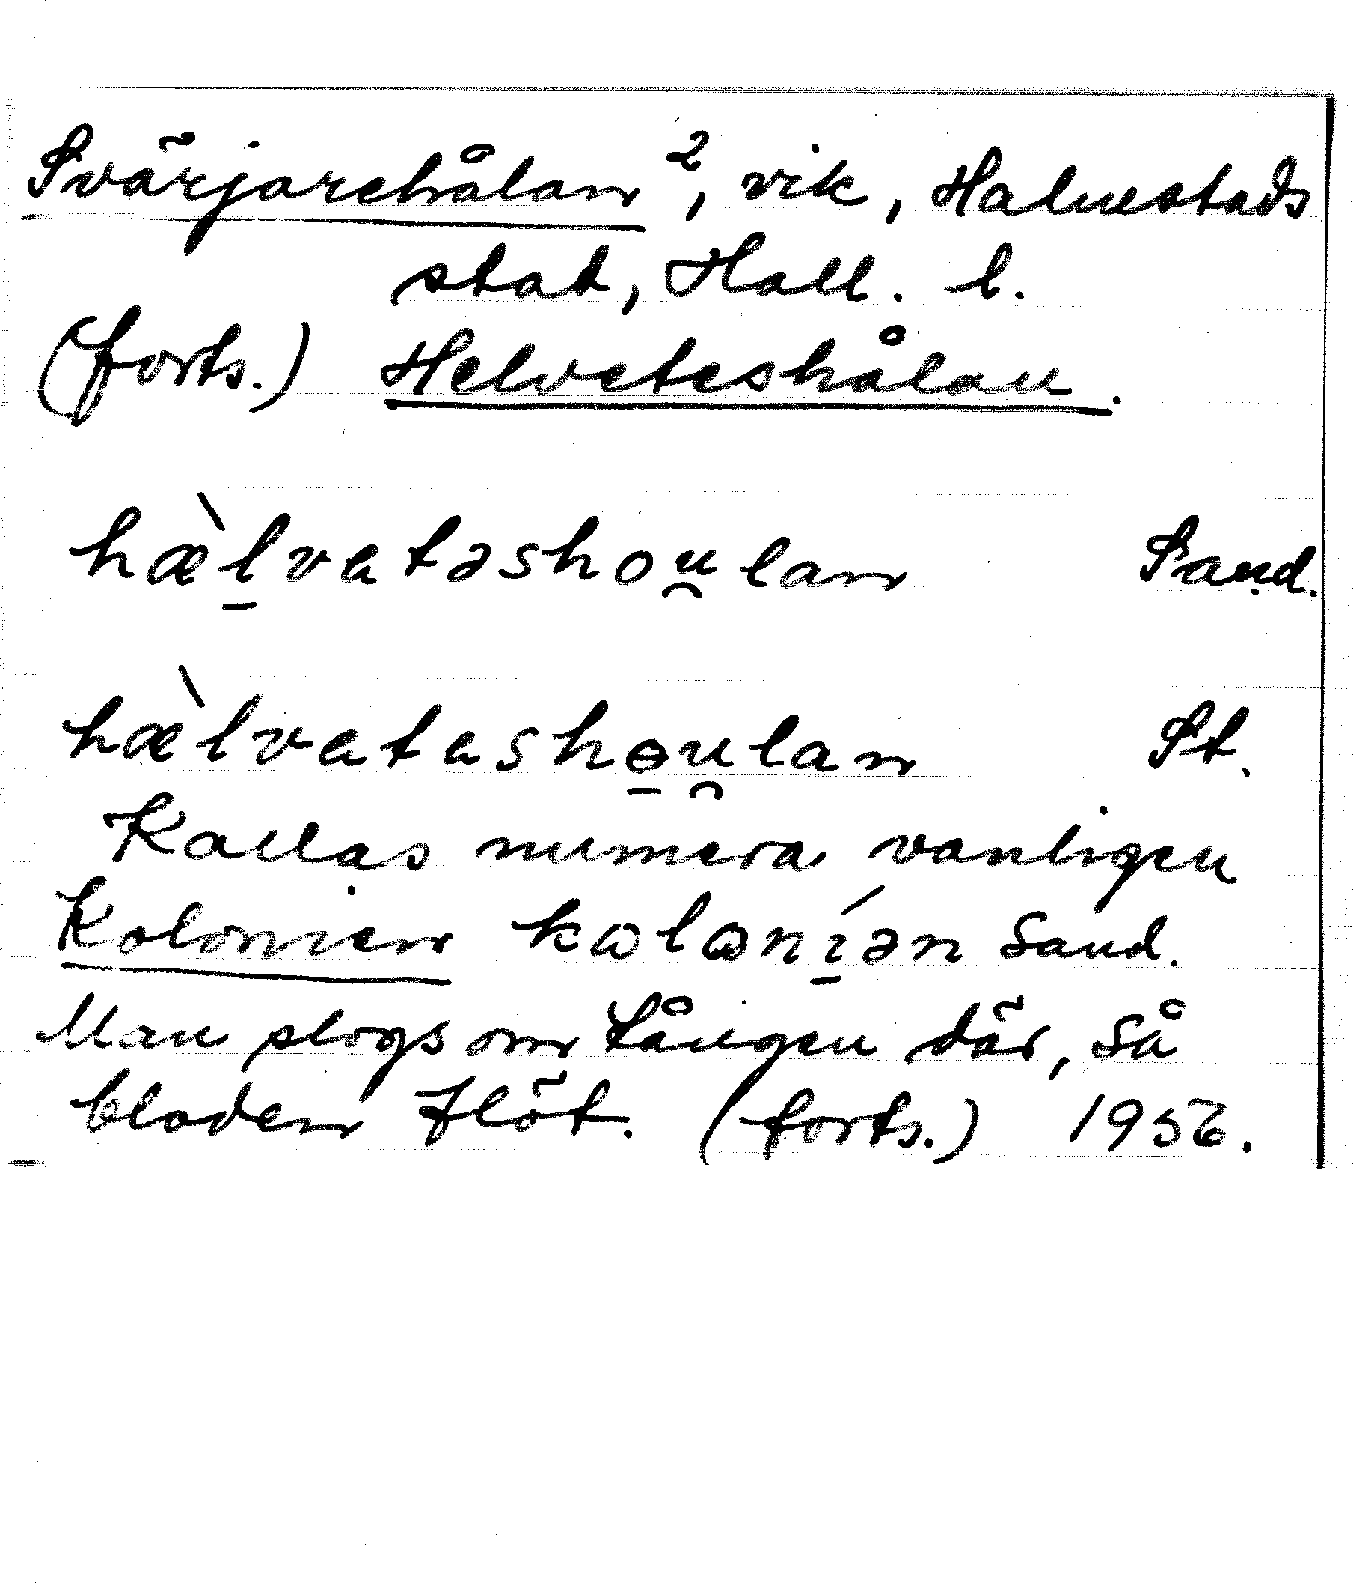 Svärjarehålan², vik, Halmstads
stad, Hall. l.
(forts.) Helveteshålan.
hæ̀l̠vatəshou̯lan Sand.
hæ̀lvatashɵ̠u̯lan St.
Kallas numera vanligen
Kolonien kɷlɷní̠ən Sand.
Man slogs om kången där, så
bloden flöt. (forts.) 1956.